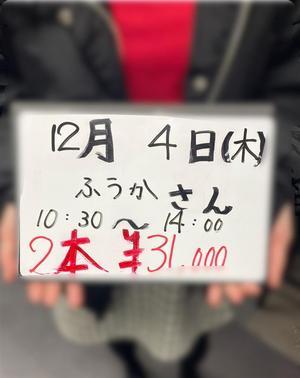 12月 4日(木)
ふうかさん
10:30〜14:00
2本 ¥31,000